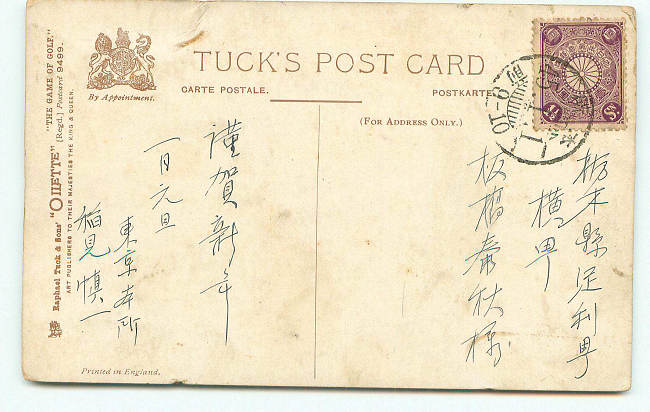 TUCK'S POST CARD
CARTE POSTALE.
POSTKARTE
(FOR ADDRESS ONLY.)
By Appointment.
"THE GAME OF GOLF."
[Regd.] Postcard 9499.
Raphael Tuck & Sons' "OILETTE"
ART PUBLISHERS TO THEIR MAJESTIES THE KING & QUEEN.
Printed in England.
栃木縣足利
板橋
様
謹賀新年
一月元旦
東京本所
稲見慎一
9-10